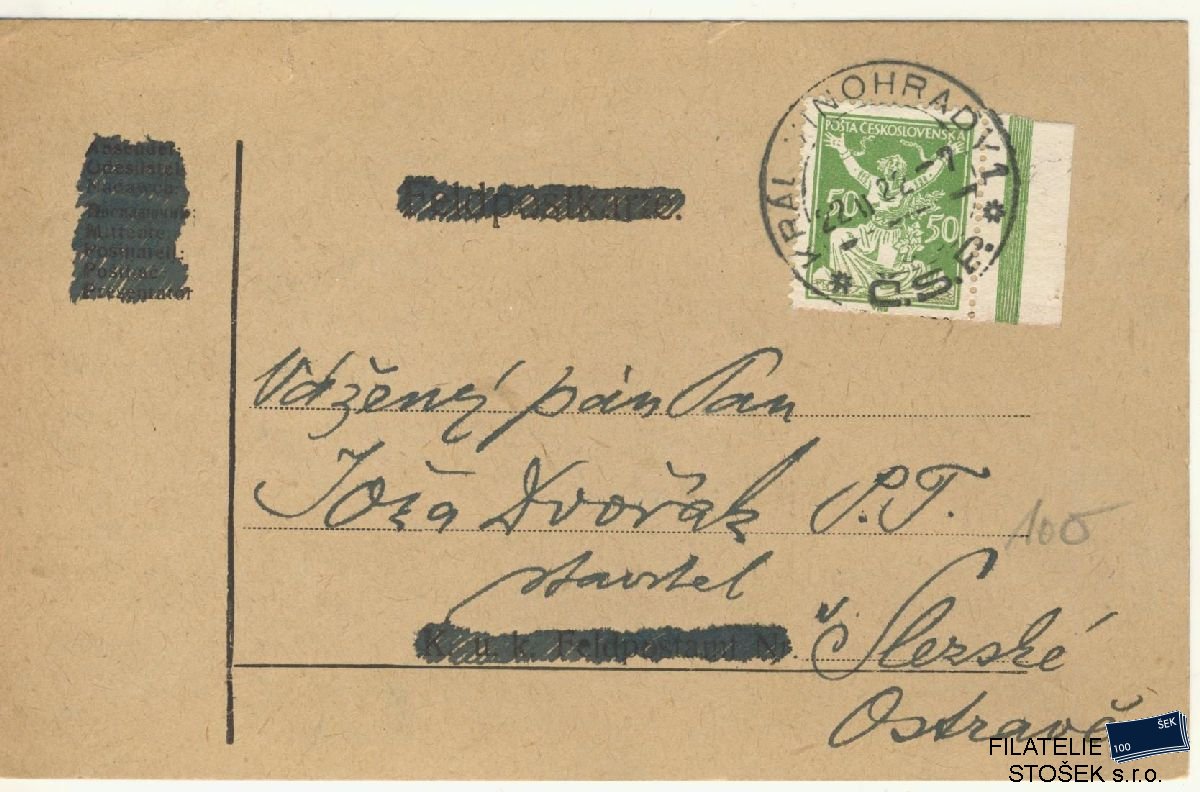 Absender:
Odesílatel:
Nadawca:
Mittente:
Feldpostkarte.
KRÁL. VINOHRADY 1
22 II 22 -7
Č.S.P.
POŠTA ČESKOSLOVENSKÁ
50 50
Vážený pán Pan
Joža Dvořák P.T.
stavitel
K. u. k. Feldpostamt Nr.
v Slezské
Ostravě
100
FILATELIE
STOŠEK s.r.o.
100 ŠEK